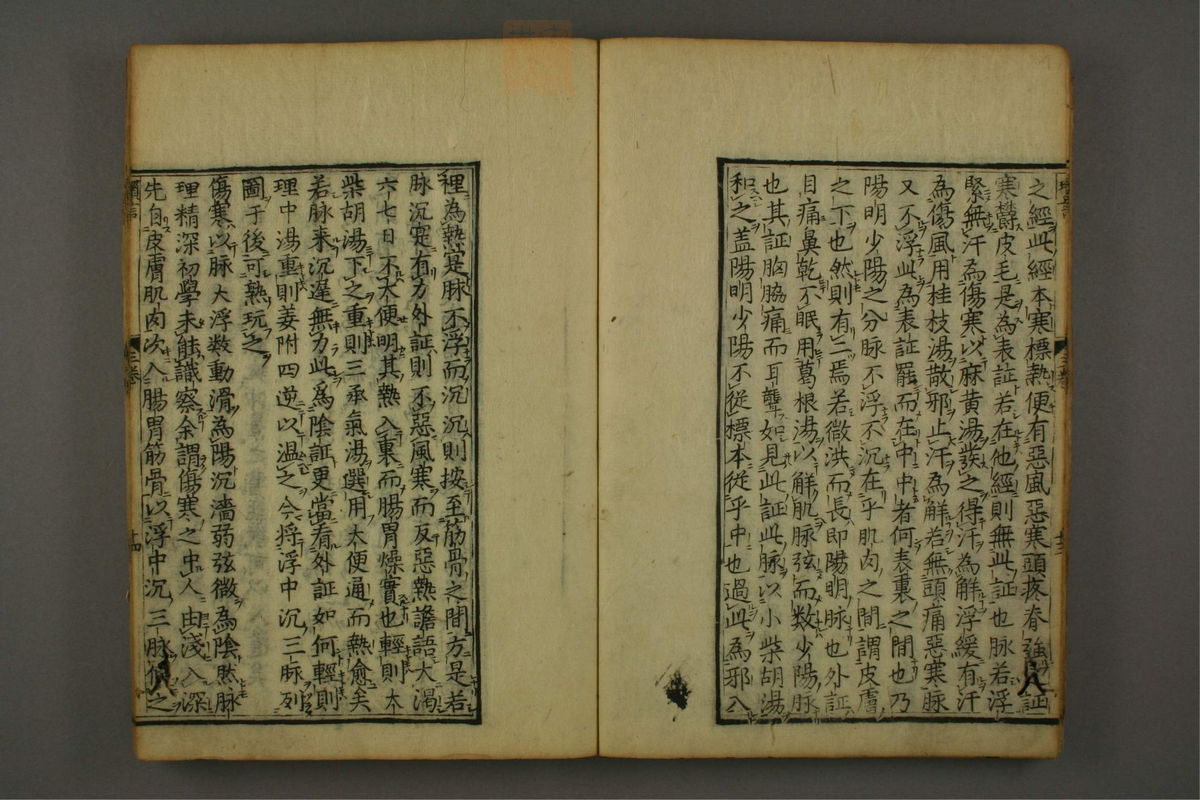 之經此經本寒標熱便有惡風惡寒頭疼脊強証
寒欝皮毛是為表証若在他經則無此証也脉若浮
緊無汗為傷寒以麻黄湯發之得汗為解浮緩有汗
為傷風用桂枝湯散邪止汗為解若無頭痛惡寒脉
又不浮此為表証罷而在中中者何表裏之間也乃
陽明少陽之分脉不浮不沉在乎肌肉之間謂皮膚
之下也然則有二焉若微洪而長即陽明脉也外証
目痛鼻乾不眠用葛根湯以解肌脉弦而数少陽脉
也其証胸脇痛而耳聾如見此証此脉以小柴胡湯
和之盖陽明少陽不從標本從乎中也過此為邪入
裡為熱實脉不浮而沉沉則按至筋骨之間方是若
脉沉实有力外証則不惡風寒而反惡熱譫語大渴
六七日不大便明其熱入裏而腸胃燥實也輕則大
柴胡湯下之重則三承氣湯選用大便通而熱愈矣
若脉来沉遅無力此為陰証更當看外証如何輕則
理中湯重則姜附四逆以温之今将浮中沉三脉列
圖于後可熟玩之
傷寒以脉大浮数動滑為陽沉濇弱弦微為陰然脉
理精深初學未能識察余謂傷寒之中人由淺入深
先自皮膚肌肉次入腸胃筋骨以浮中沉三脉候之
三卷
十四